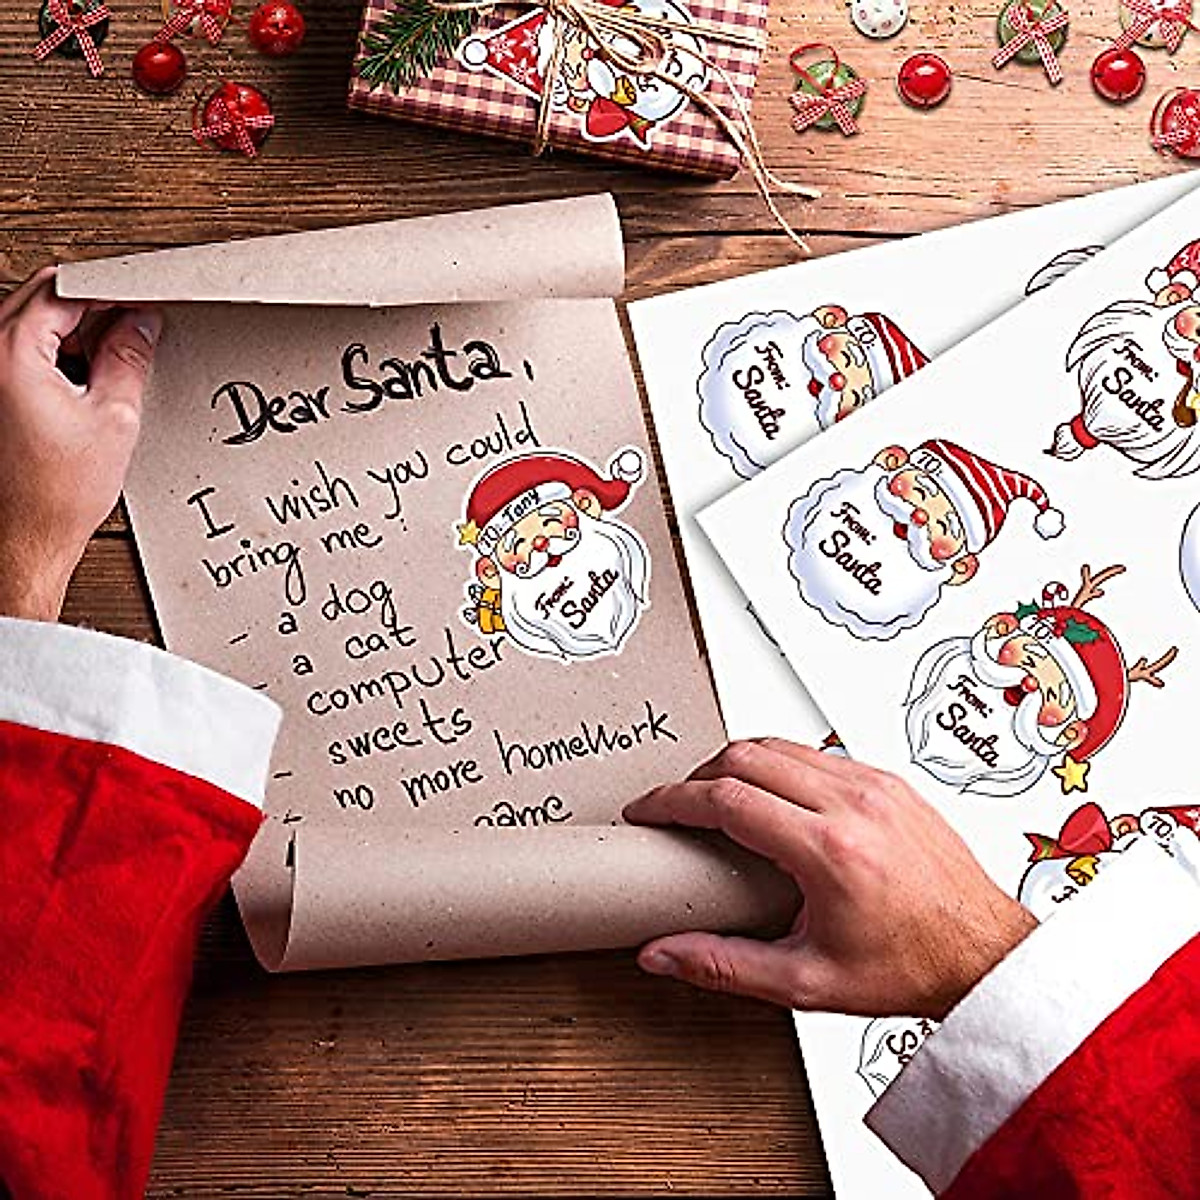 Dear Santa,
I wish you could
bring me:
- a dog
- a cat
computer
- sweets
- no more homework
game
TO: Tony
From:
Santa
TO:
From:
Santa
TO:
From:
Santa
From:
Santa
TO:
From:
Santa
TO: